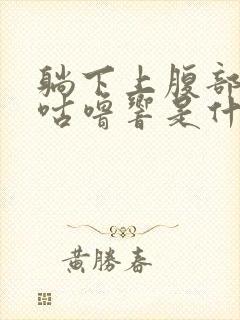 躺下上腹部
咕噜響是什
黄勝春